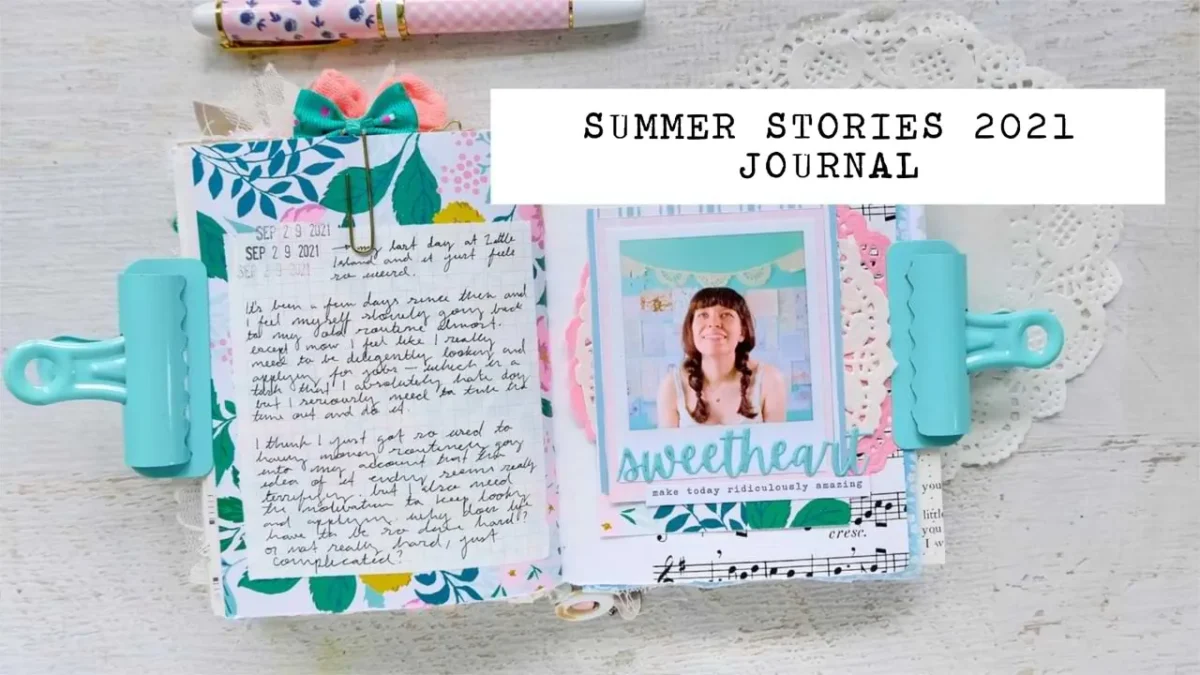 SUMMER STORIES 2021
JOURNAL
SEP 2 9 2021
SEP 2 9 2021
SEP 2 9 2021
my last day at Little
Island and it just feels
so weird.
It's been a few days since then and
I feel myself slowly going back
to my old routine almost.
except now I feel like I really
need to be deligently looking and
applying for jobs — which is a
task that I absolutely hate doing
but I seriously need to take the
time out and do it.
I think I just got so used to
having money routinely going
into my account that the
idea of it ending seems really
terrifying. but I also need
the motivation to keep looking
and applying. why does life
have to be so damn hard?
or not really hard, just
complicated?
sweetheart
make today ridiculously amazing
cresc.
you
little
you
I w